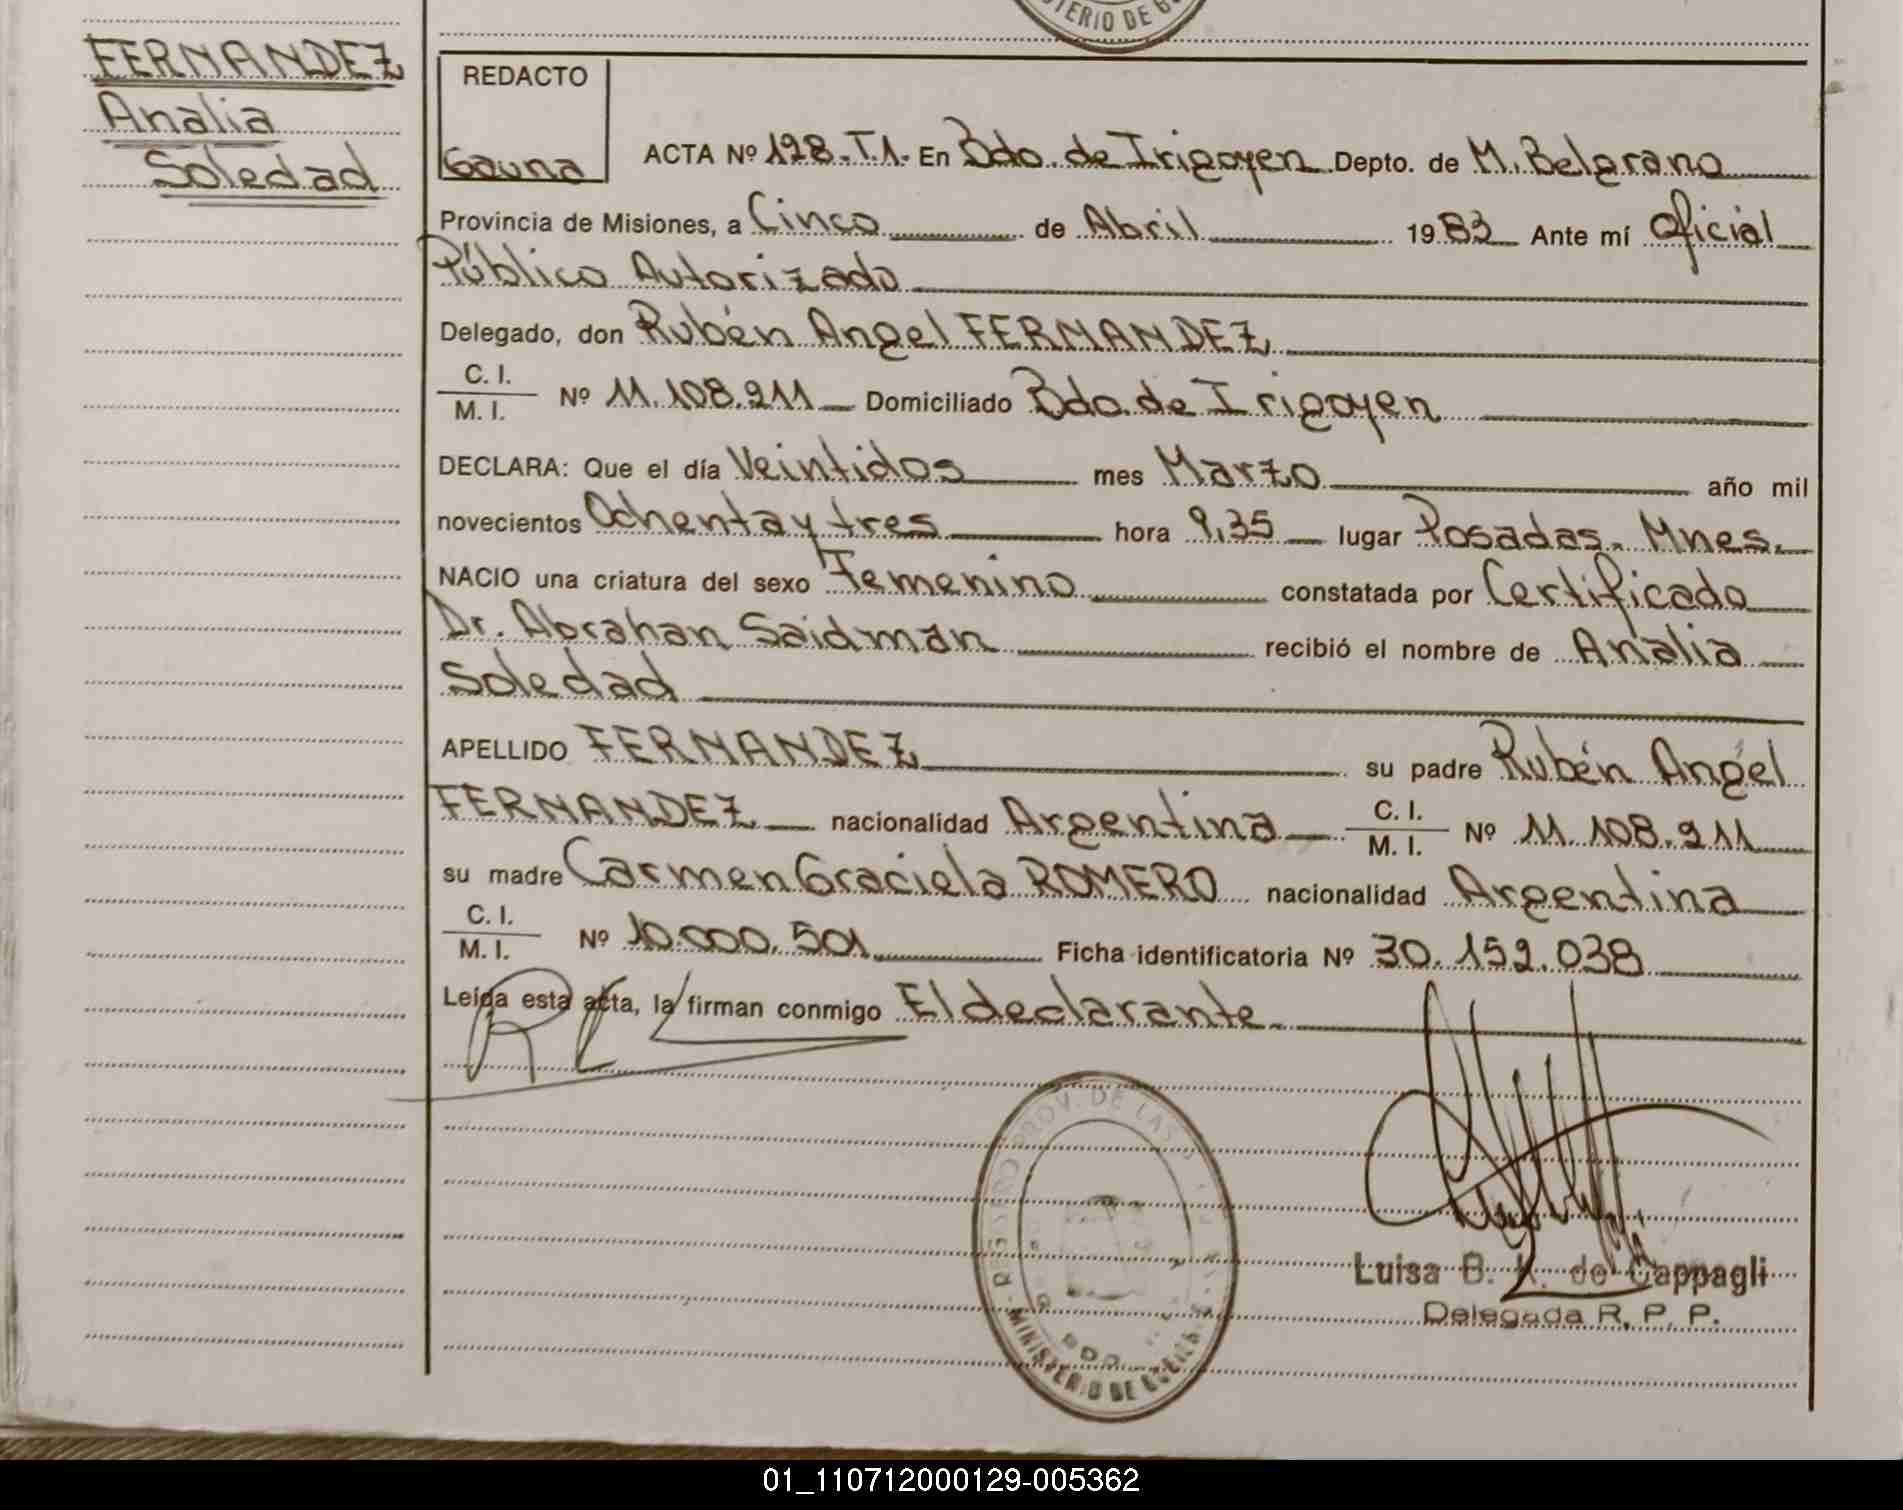 FERNANDEZ
Analia
Soledad
REDACTO
Gauna
ACTA Nº 128.T.1. En Bdo. de Irigoyen Depto. de M. Belgrano
Provincia de Misiones, a Cinco de Abril 1983 Ante mí Oficial
Público Autorizado
Delegado, don Rubén Angel FERNANDEZ
C. I.
M. I. Nº 11.108.211 Domiciliado Bdo. de Irigoyen
DECLARA: Que el día Veintidos mes Marzo año mil
novecientos Ochenta y tres hora 9,35 lugar Posadas. Mnes.
NACIO una criatura del sexo Femenino constatada por Certificado
Dr. Abrahan Saidman recibió el nombre de Analia
Soledad
APELLIDO FERNANDEZ su padre Rubén Angel
FERNANDEZ nacionalidad Argentina C. I. M. I. Nº 11.108.211
su madre Carmen Graciela ROMERO nacionalidad Argentina
C. I.
M. I. Nº 10.000.501 Ficha identificatoria Nº 30.152.038
Leída esta acta, la firman conmigo El declarante.
PROV. DE LAS
MINISTERIO DE
Luisa B. K. de Cappagli
Delegada R. P. P.
01_110712000129-005362